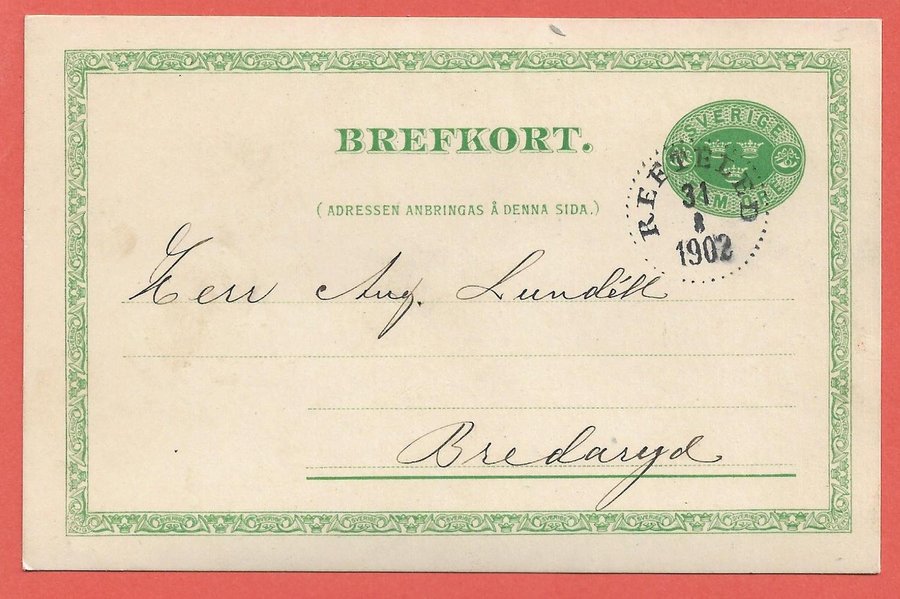 BREFKORT.
(ADRESSEN ANBRINGAS Å DENNA SIDA.)
SVERIGE
FEM ÖRE
REFTELED
31
8
1902
Herr Aug. Lundéll
Bredaryd